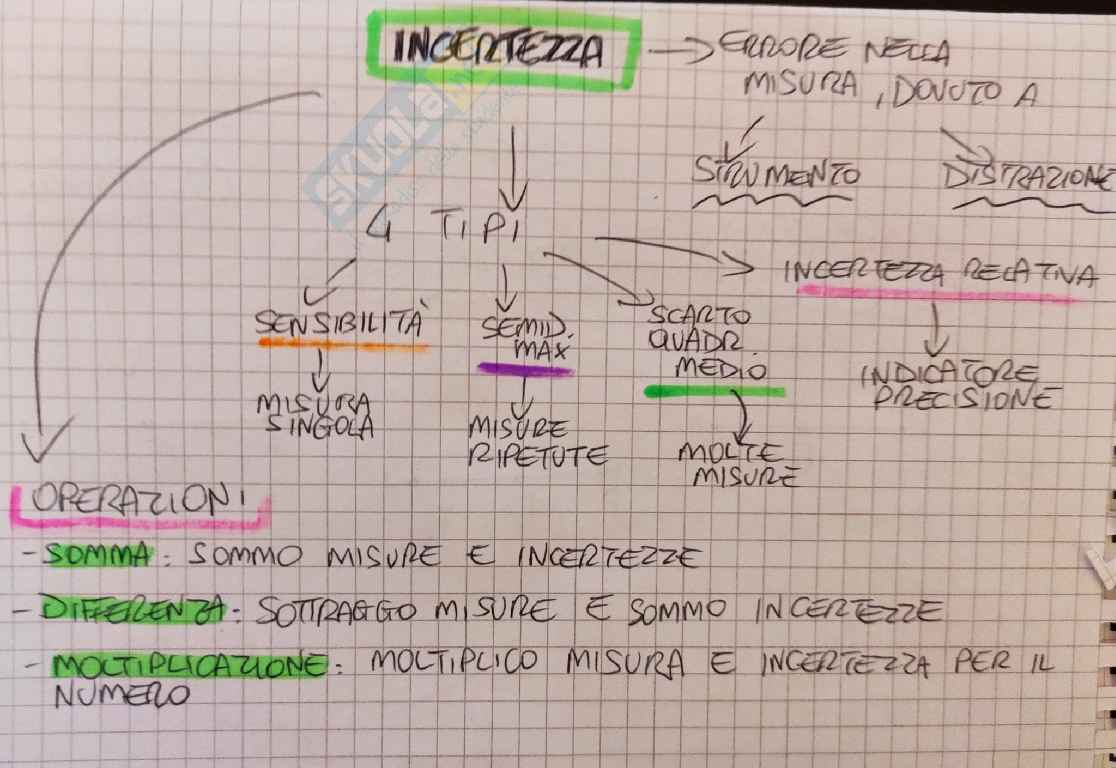 INCERTEZZA
ERRORE NELLA
MISURA, DOVUTO A
STRUMENTO
DISTRAZIONE
4 TIPI
SENSIBILITÀ
MISURA
SINGOLA
SEMID.
MAX
MISURE
RIPETUTE
SCARTO
QUADR.
MEDIO
MOLTE
MISURE
INCERTEZZA RELATIVA
INDICATORE
PRECISIONE
OPERAZIONI
- SOMMA: SOMMO MISURE E INCERTEZZE
- DIFFERENZA: SOTTRAGGO MISURE E SOMMO INCERTEZZE
- MOLTIPLICAZIONE: MOLTIPLICO MISURA E INCERTEZZA PER IL
NUMERO
SKUOLA